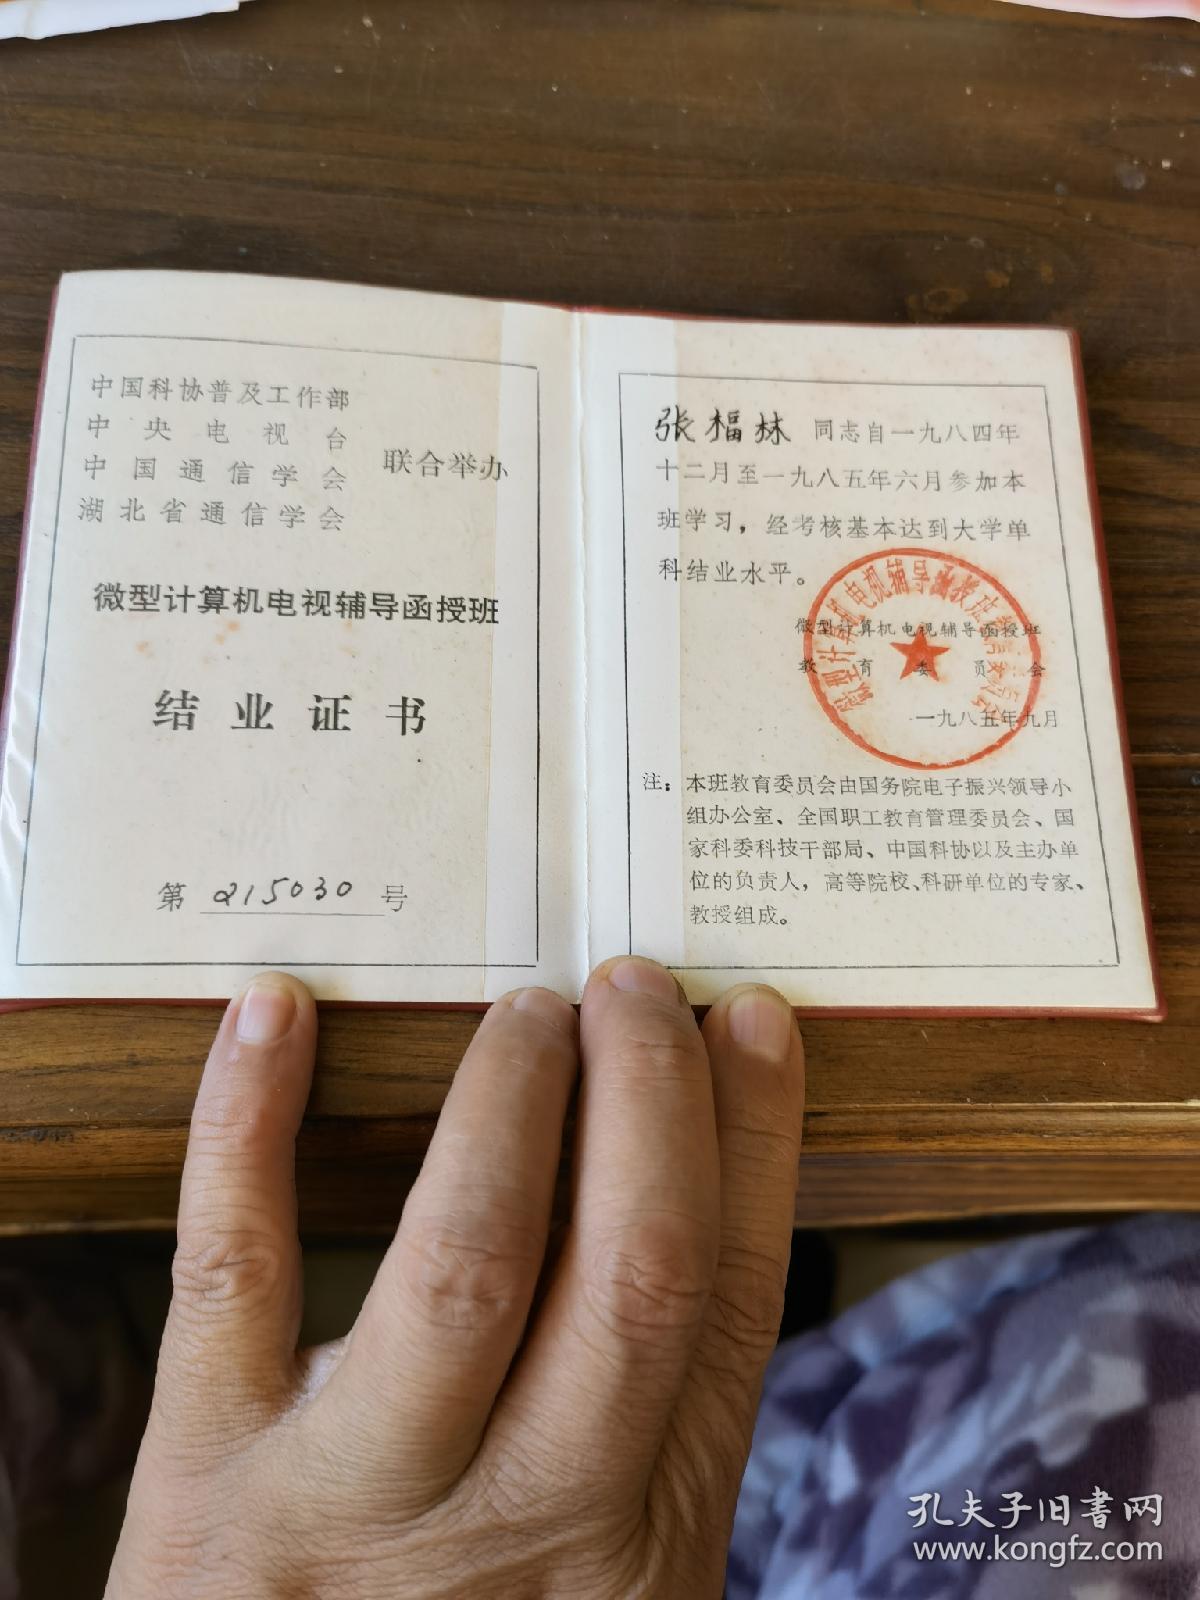 中国科协普及工作部
中央电视台
中国通信学会
湖北省通信学会
联合举办
微型计算机电视辅导函授班
结业证书
第 215030 号
张福林 同志自一九八四年
十二月至一九八五年六月参加本
班学习，经考核基本达到大学单
科结业水平。
微型计算机电视辅导函授班
教育委员会
一九八五年九月
微型计算机电视辅导函授班教育委员会
注：本班教育委员会由国务院电子振兴领导小
组办公室、全国职工教育管理委员会、国
家科委科技干部局、中国科协以及主办单
位的负责人，高等院校、科研单位的专家、
教授组成。
孔夫子旧书网
www.kongfz.com